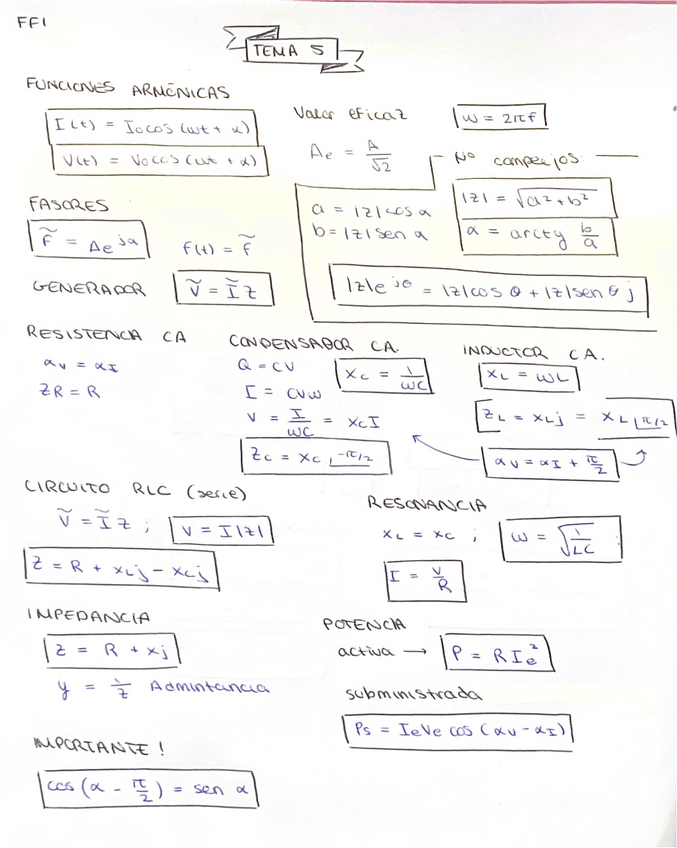 FFI
TEMA 5
FUNCIONES ARMÓNICAS
I(t) = I₀cos(ωt + α)
V(t) = V₀cos(ωt + α)
Valor eficaz
Ae = A/√2
ω = 2πf
Nº complejos:
a = |z|cos α
b = |z|sen α
|z| = √(a² + b²)
α = arctg b/a
|z|e^jθ = |z|cos θ + |z|sen θ j
FASORES
f̃ = Ae^jα
f(t) = f̃
GENERADOR
Ṽ = Ĩ z
RESISTENCIA CA
αv = αI
ZR = R
CONDENSADOR CA.
Q = CV
Xc = 1/ωC
I = CVω
V = I/ωC = XcI
Zc = Xc |-π/2
INDUCTOR CA.
XL = ωL
ZL = XLj = XL |π/2
αv = αI + π/2
CIRCUITO RLC (serie)
Ṽ = Ĩ z ; V = I|z|
Z = R + XLj - Xcj
RESONANCIA
XL = Xc ; ω = √(1/LC)
I = V/R
IMPEDANCIA
Z = R + Xj
y = 1/z Admintancia
POTENCIA
activa → P = RIe²
subministrada
Ps = IeVe cos (αv - αI)
IMPORTANTE!
cos(α - π/2) = sen α